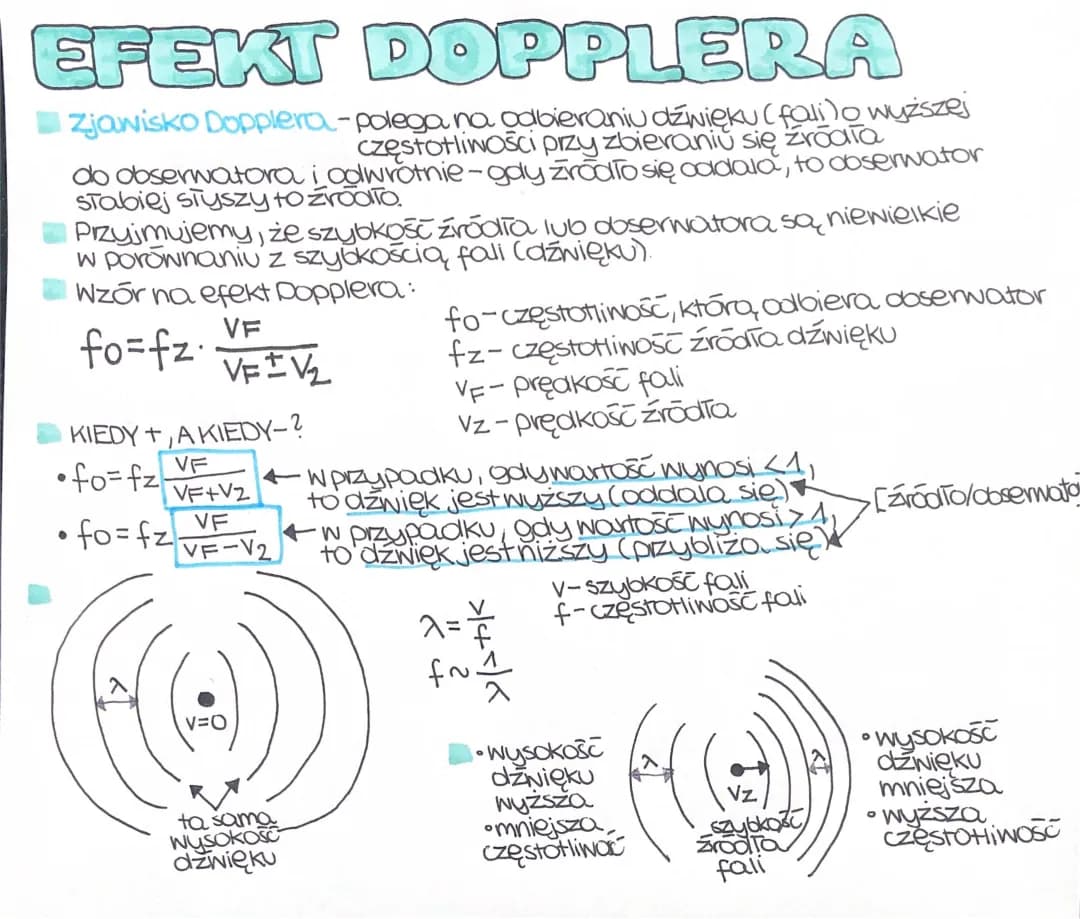 EFEKT DOPPLERA
Zjawisko Dopplera - polega na odbieraniu dźwięku (fali) o wyższej
częstotliwości przy zbieraniu się źródła
do obserwatora i odwrotnie - gdy źródło się oddala, to obserwator
słabiej słyszy to źródło.
Przyjmujemy, że szybkość źródła lub obserwatora są niewielkie
w porównaniu z szybkością fali (dźwięku).
Wzór na efekt Dopplera:
fo=fz· VF / VF ± Vz
fo - częstotliwość, którą odbiera obserwator
fz - częstotliwość źródła dźwięku
VF - prędkość fali
Vz - prędkość źródła
KIEDY +, A KIEDY - ?
• fo=fz VF / VF+Vz ← w przypadku, gdy wartość wynosi <1,
to dźwięk jest wyższy (oddala się)
[źródło/obserwato
• fo=fz VF / VF-Vz ← w przypadku, gdy wartość wynosi >1,
to dźwięk jest niższy (przybliża się)
λ
V=0
ta sama
wysokość
dźwięku
λ = v / f
f ~ 1 / λ
v - szybkość fali
f - częstotliwość fali
• wysokość
dźwięku
wyższa
• mniejsza
częstotliwość
λ
Vz
λ
szybkość
źródła
fali
• wysokość
dźwięku
mniejsza
• wyższa
częstotliwość